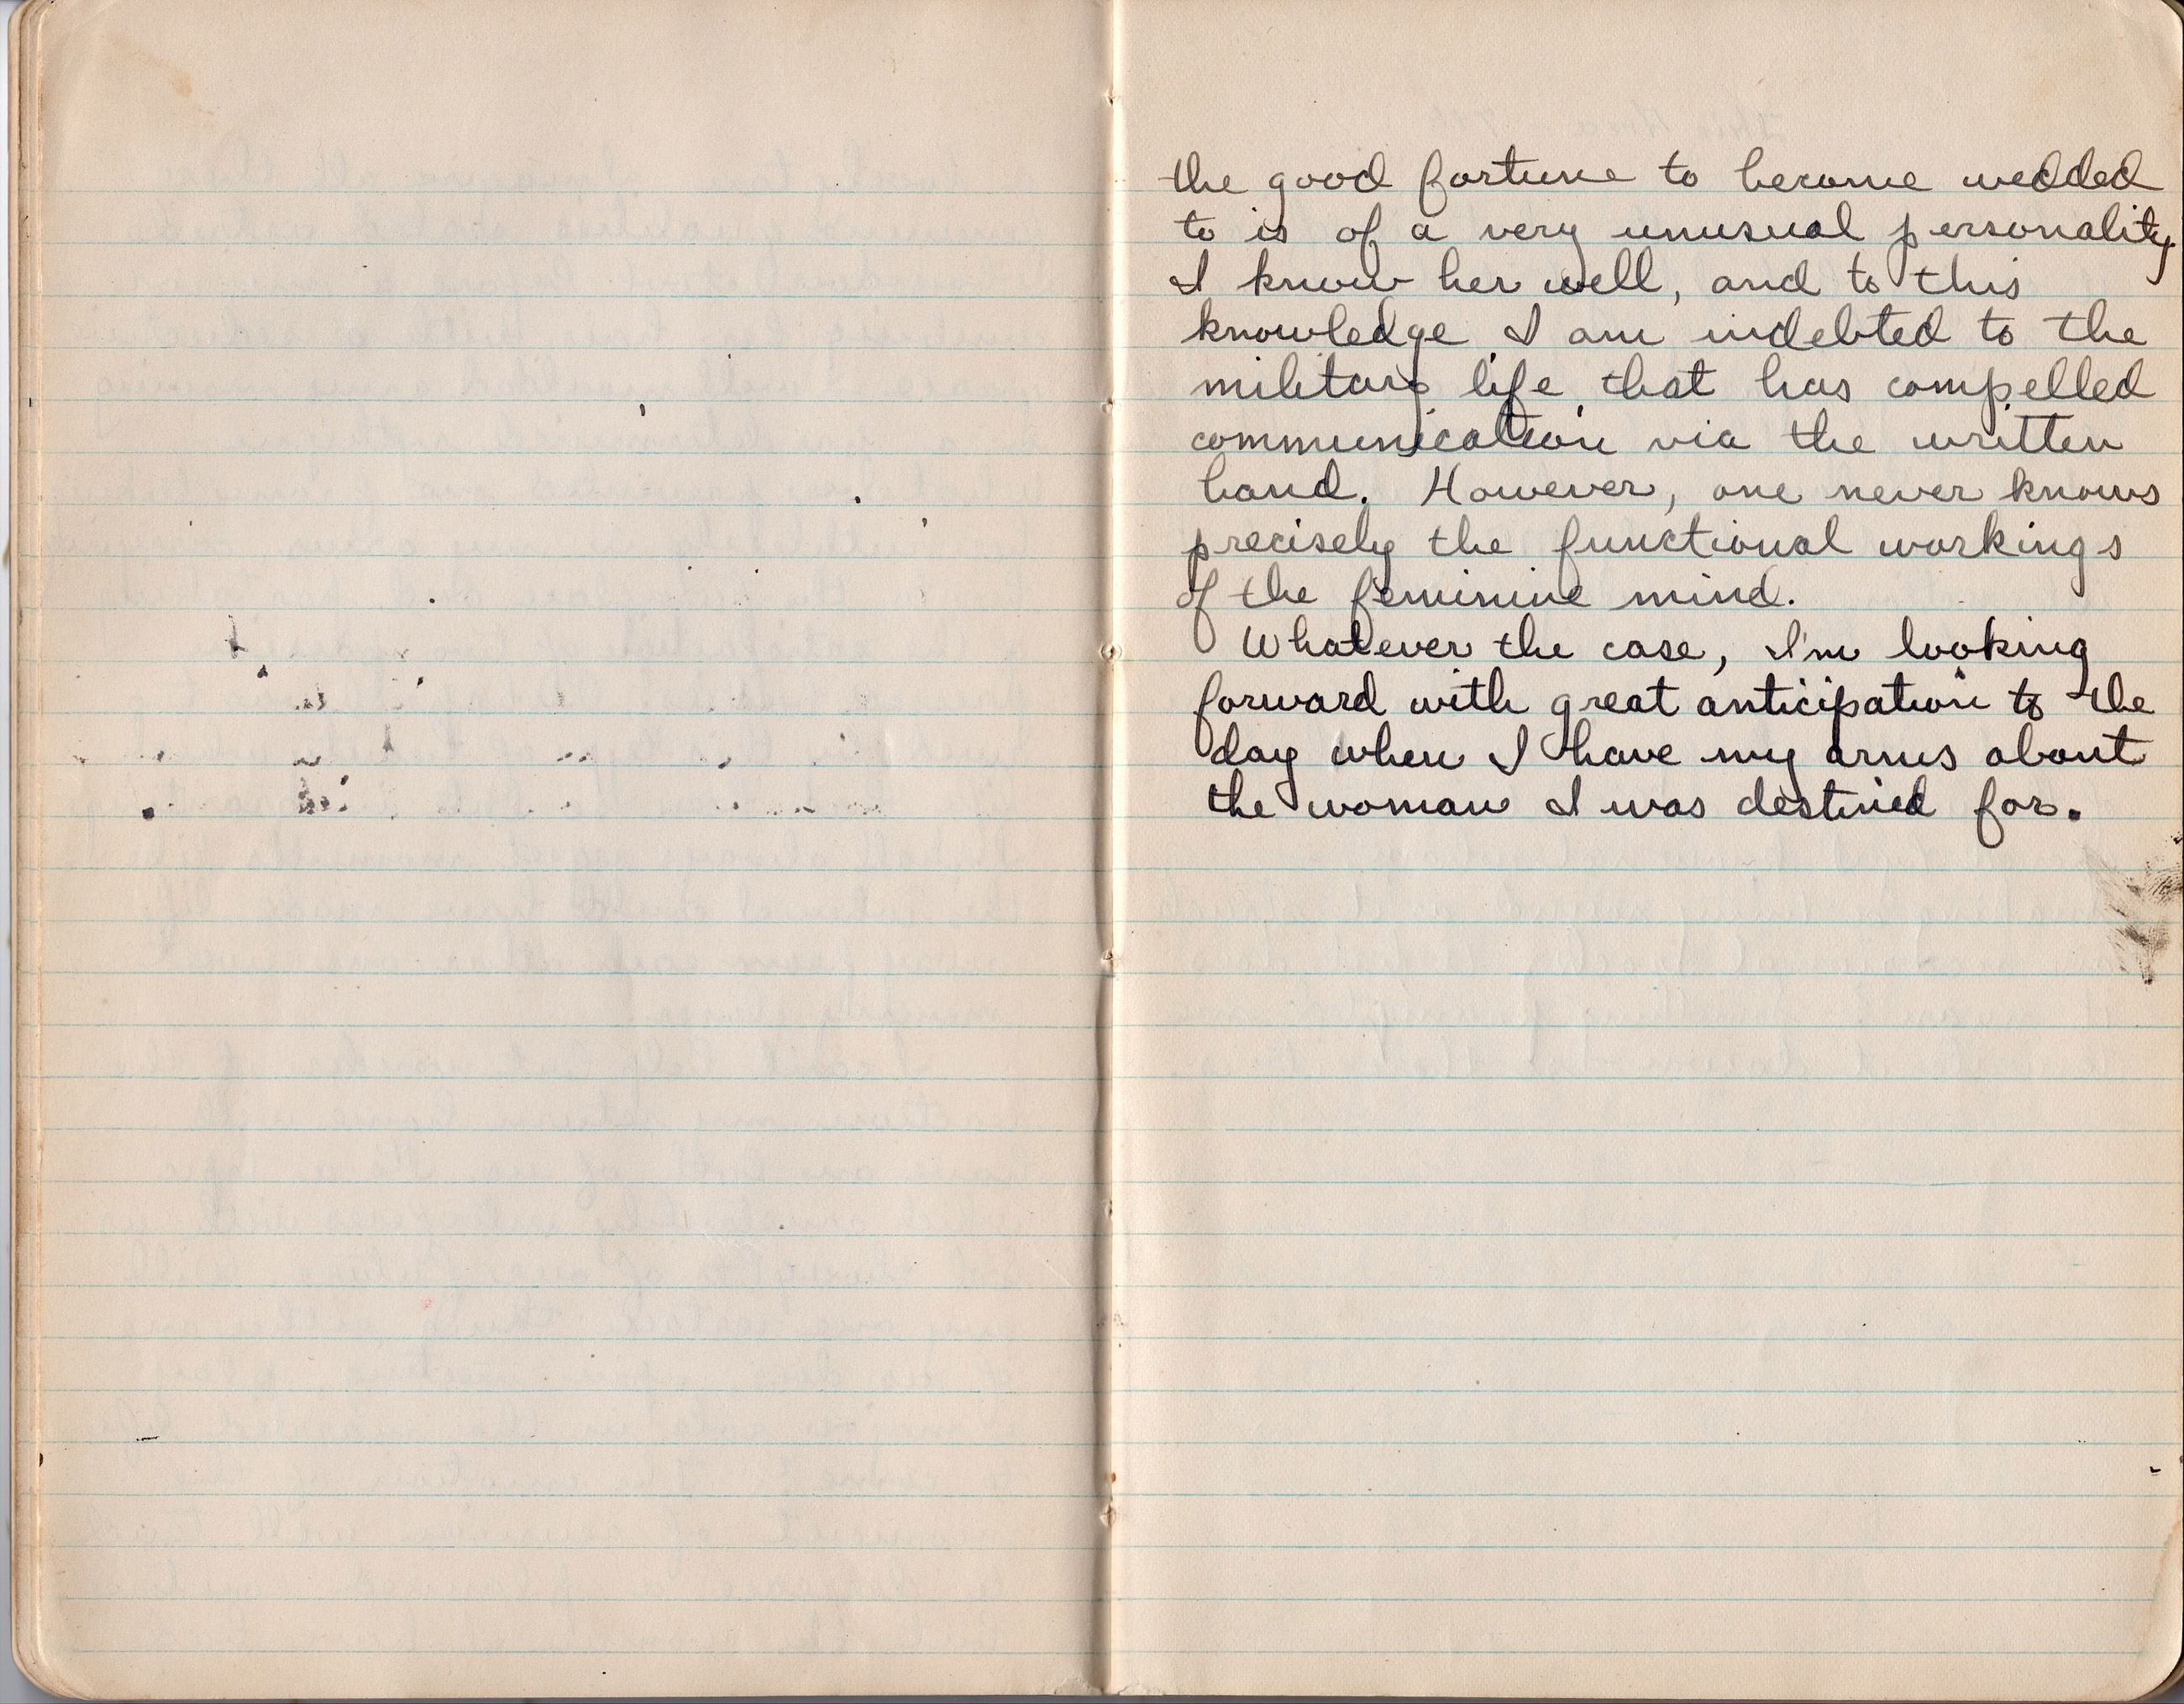 the good fortune to become wedded
to is of a very unusual personality.
I know her well, and to this
knowledge I am indebted to the
military life that has compelled
communication via the written
hand. However, one never knows
precisely the functional workings
of the feminine mind.
Whatever the case, I'm looking
forward with great anticipation to the
day when I have my arms about
the woman I was destined for.